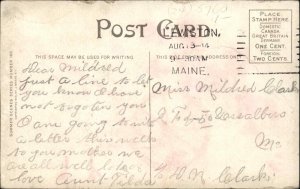 POST CARD
LEWISTON,
AUG 3
MAINE.
PLACE
STAMP HERE
DOMESTIC
CANADA
GREAT BRITAIN
GERMANY
ONE CENT
FOREIGN
TWO CENTS
THIS SPACE MAY BE USED FOR WRITING
THIS SPACE FOR ADDRESS ONLY
Dear Mildred
Just a line to let
you know I have
not forgotten you
I am going to
a letter this week
to your mother we
are all well
love Aunt
Miss Mildred Clark
Me
H. R. Clark